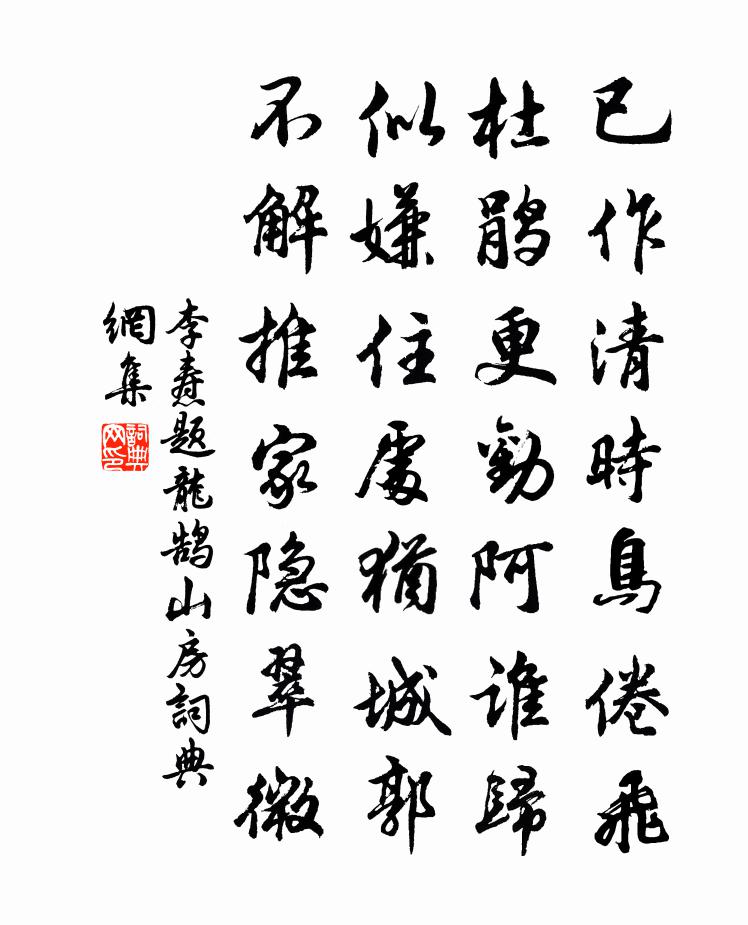 已作清時鳥倦飛
杜鵑更勸阿誰歸
似嫌住處猶城郭
不解推家隐翠微
李焘題龍鵠山房詞典
網集
詞典网印